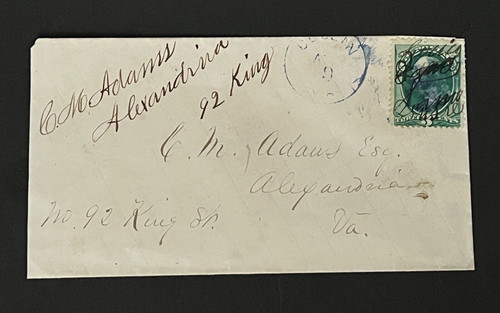 C. M. Adams
Alexandria
92 King
C. M. Adams Esq.
Alexandria
No. 92 King St.
Va.